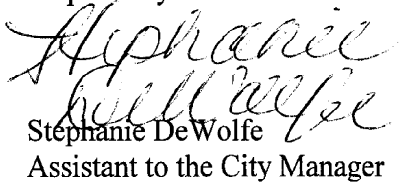 Stephanie
DeWolfe
Stephanie DeWolfe
Assistant to the City Manager